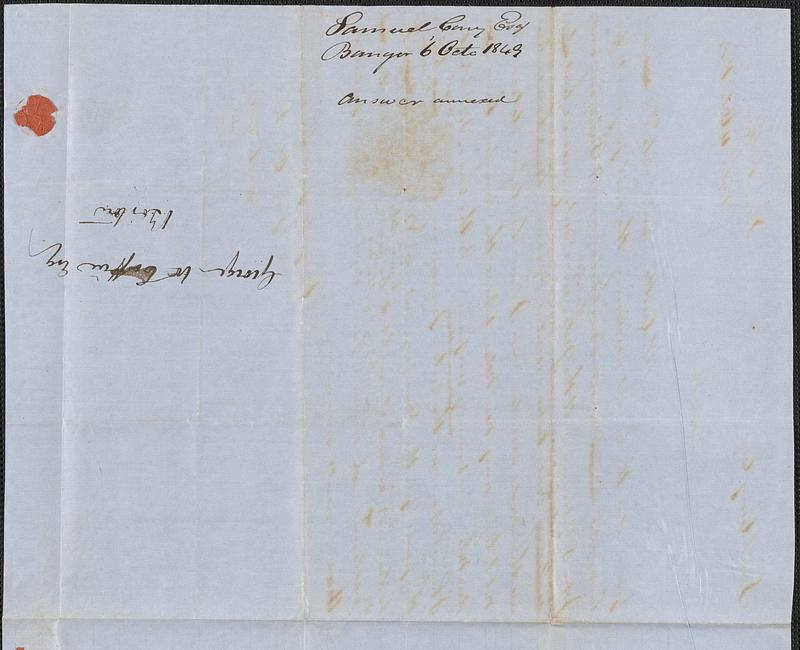 Samuel Cony Esq
Bangor 6 Octo 1849
Answer annexed
George W Coffin Esq
Boston